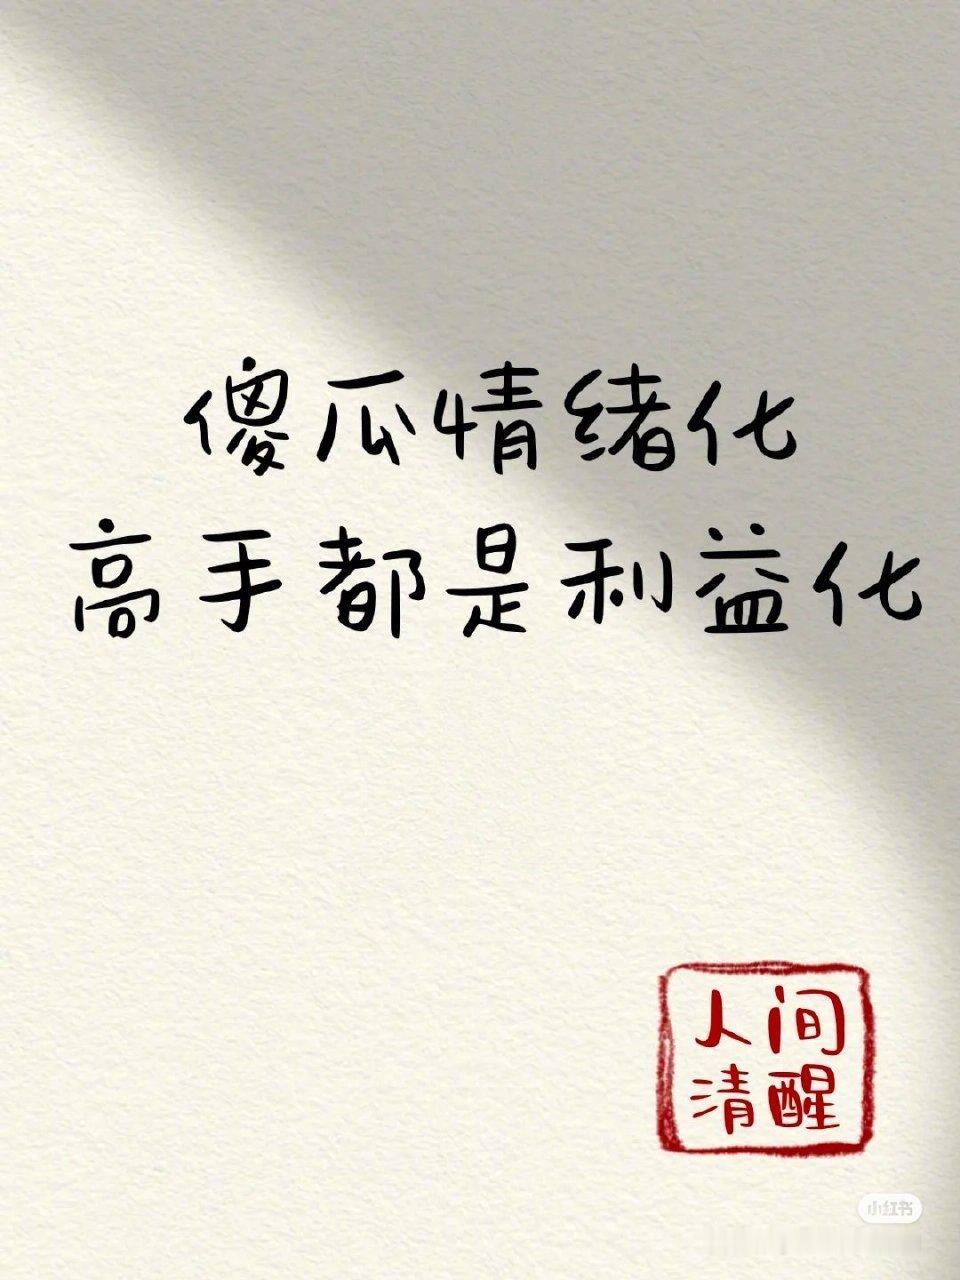 傻瓜情绪化
高手都是利益化
人间
清醒
小红书